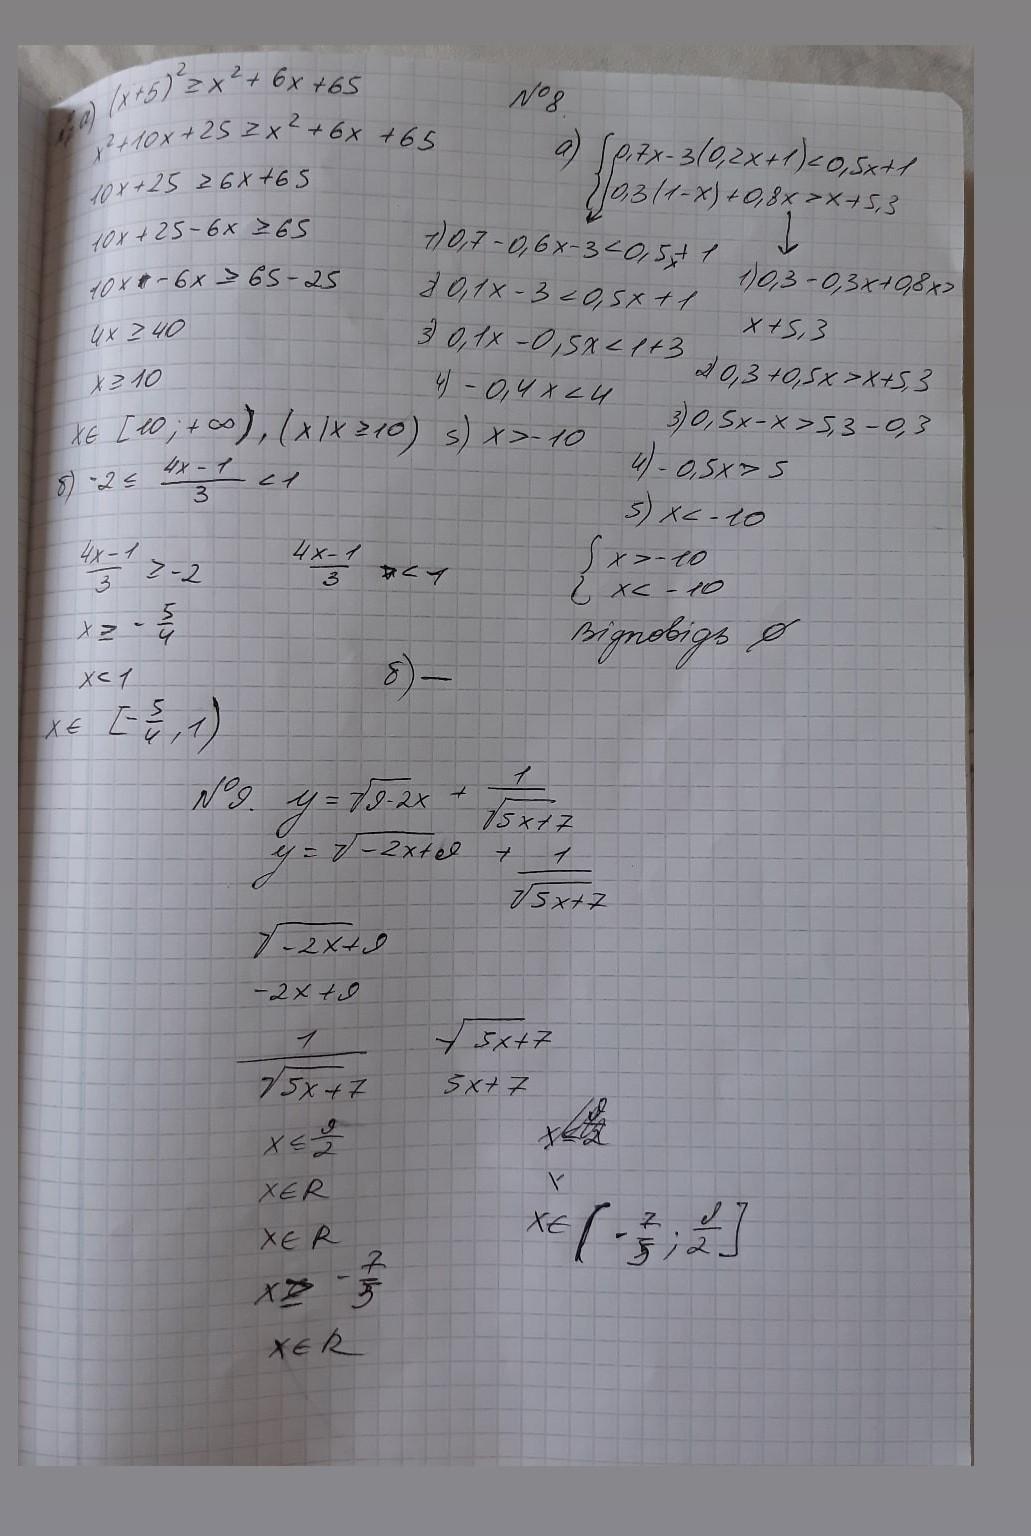 а) (x+5)² ≥ x² + 6x + 65
x² + 10x + 25 ≥ x² + 6x + 65
10x + 25 ≥ 6x + 65
10x + 25 - 6x ≥ 65
10x - 6x ≥ 65 - 25
4x ≥ 40
x ≥ 10
x ∈ [10; +∞), (x|x ≥ 10)
б) -2 ≤ (4x-1)/3 < 1
(4x-1)/3 ≥ -2 (4x-1)/3 < 1
x ≥ -5/4
x < 1
x ∈ [-5/4, 1)
№8.
а) { 0,7x - 3(0,2x+1) < 0,5x + 1
0,3(1-x) + 0,8x > x + 5,3
1) 0,7 - 0,6x - 3 < 0,5x + 1
2) 0,1x - 3 < 0,5x + 1
3) 0,1x - 0,5x < 1 + 3
4) - 0,4x < 4
5) x > -10
1) 0,3 - 0,3x + 0,8x >
x + 5,3
2) 0,3 + 0,5x > x + 5,3
3) 0,5x - x > 5,3 - 0,3
4) - 0,5x > 5
5) x < -10
{ x > -10
x < -10
Відповідь ∅
б) —
№9. y = √9-2x + 1/√5x+7
y = √-2x+9 + 1/√5x+7
√-2x+9
-2x+9
1/√5x+7 √5x+7
5x+7
x ≤ 9/2
x ∈ R
x ∈ R
x ≥ -7/5
x ∈ R
x
x ∈ [-7/5; 9/2]